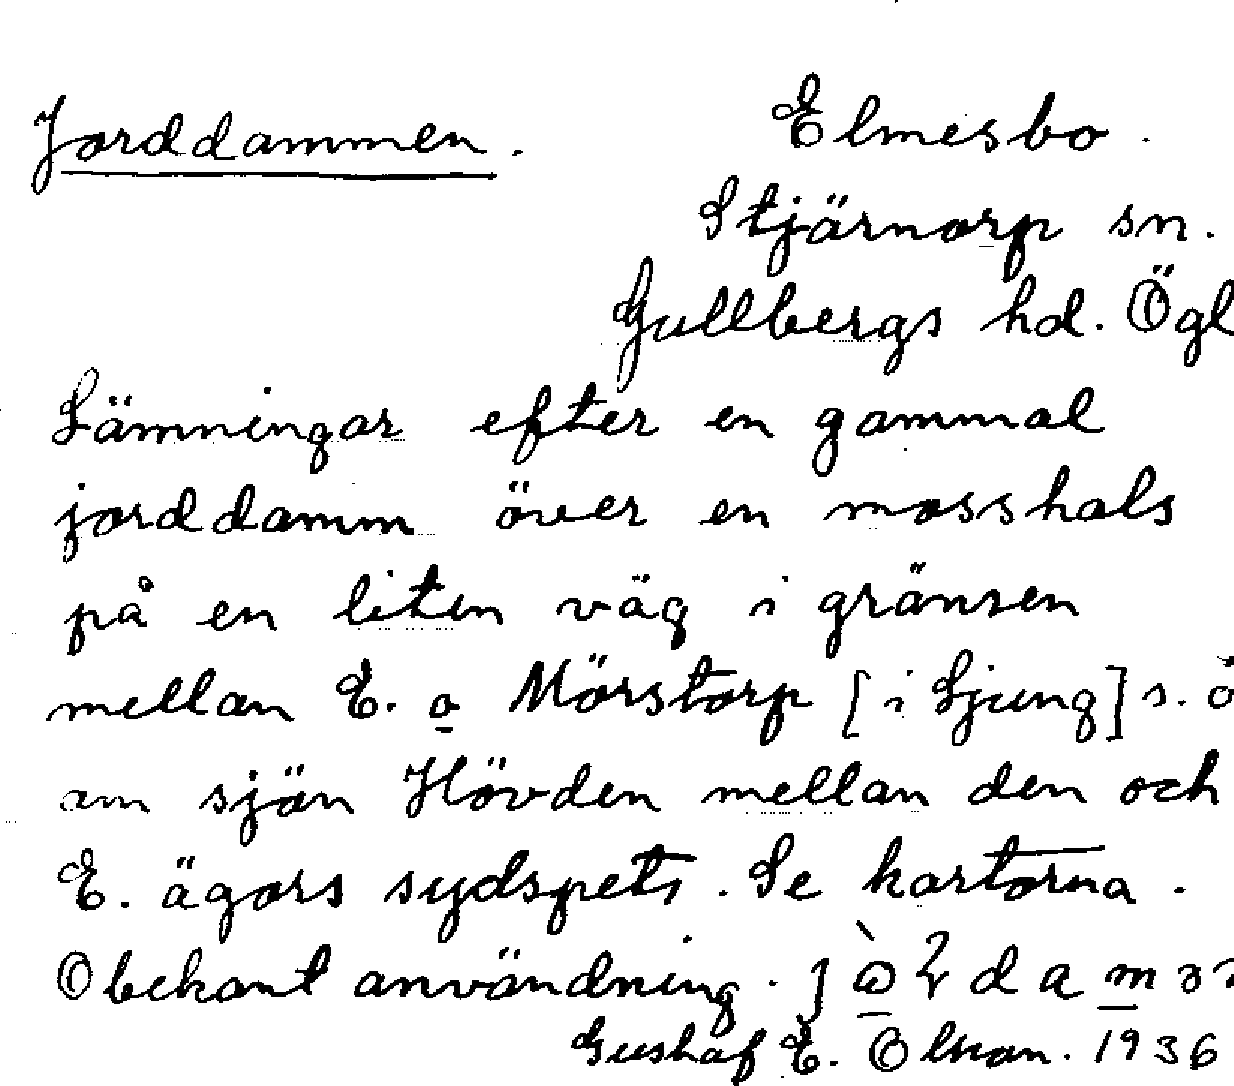 Jorddammen. Elmesbo.
Stjärnorp sn.
Gullbergs hd. Ögl
Lämningar efter en gammal
jorddamm över en mosshals
på en liten väg i gränsen
mellan E. o Mörstorp [i Ljung] s. ö
om sjön Hövden mellan den och
E. ägors sydspets. Se kartorna.
Obekant användning.
Gustaf E. Olson. 1936